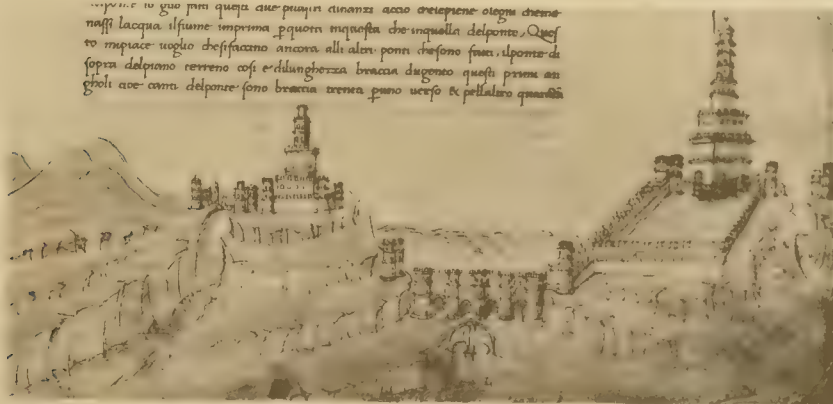 io gllo fatti questi due pilastri dinanzi accio chelepiene olegni chemenassi lacqua ilfiume imprima pquota inquesta che inquella delponte, Questo
to mipiace uoglio chesifaccino ancora alli altri ponti chesono fatti, ilponte di
sopra delpiano terreno cosi e dilungheza braccia dugento questi primi an
gholi cioe canti delponte sono braccia trenta p uno uerso & pellaltro quaranta